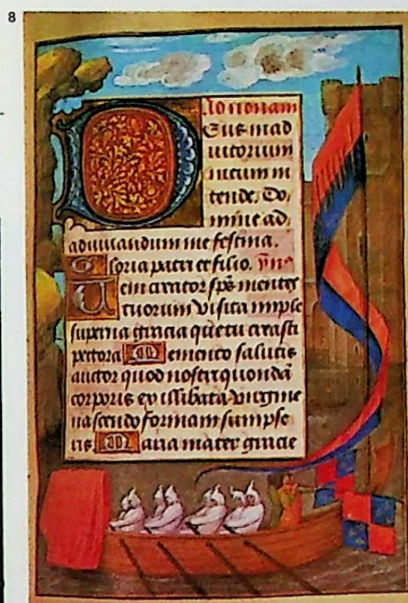 8
Ad nonam
Deus in ad
iutorium
meum in
tende. Do
mine ad
adiuuandum me festina.
Gloria patri et filio. ym̄s
Ueni creator sp̄s mentes
tuorum visita imple
superna gracia que tu creasti
pectora Memento salutis
auctor quod nostri quondā
corporis ex illibata virgine
nascendo formam sumpse
ris Maria mater gracie